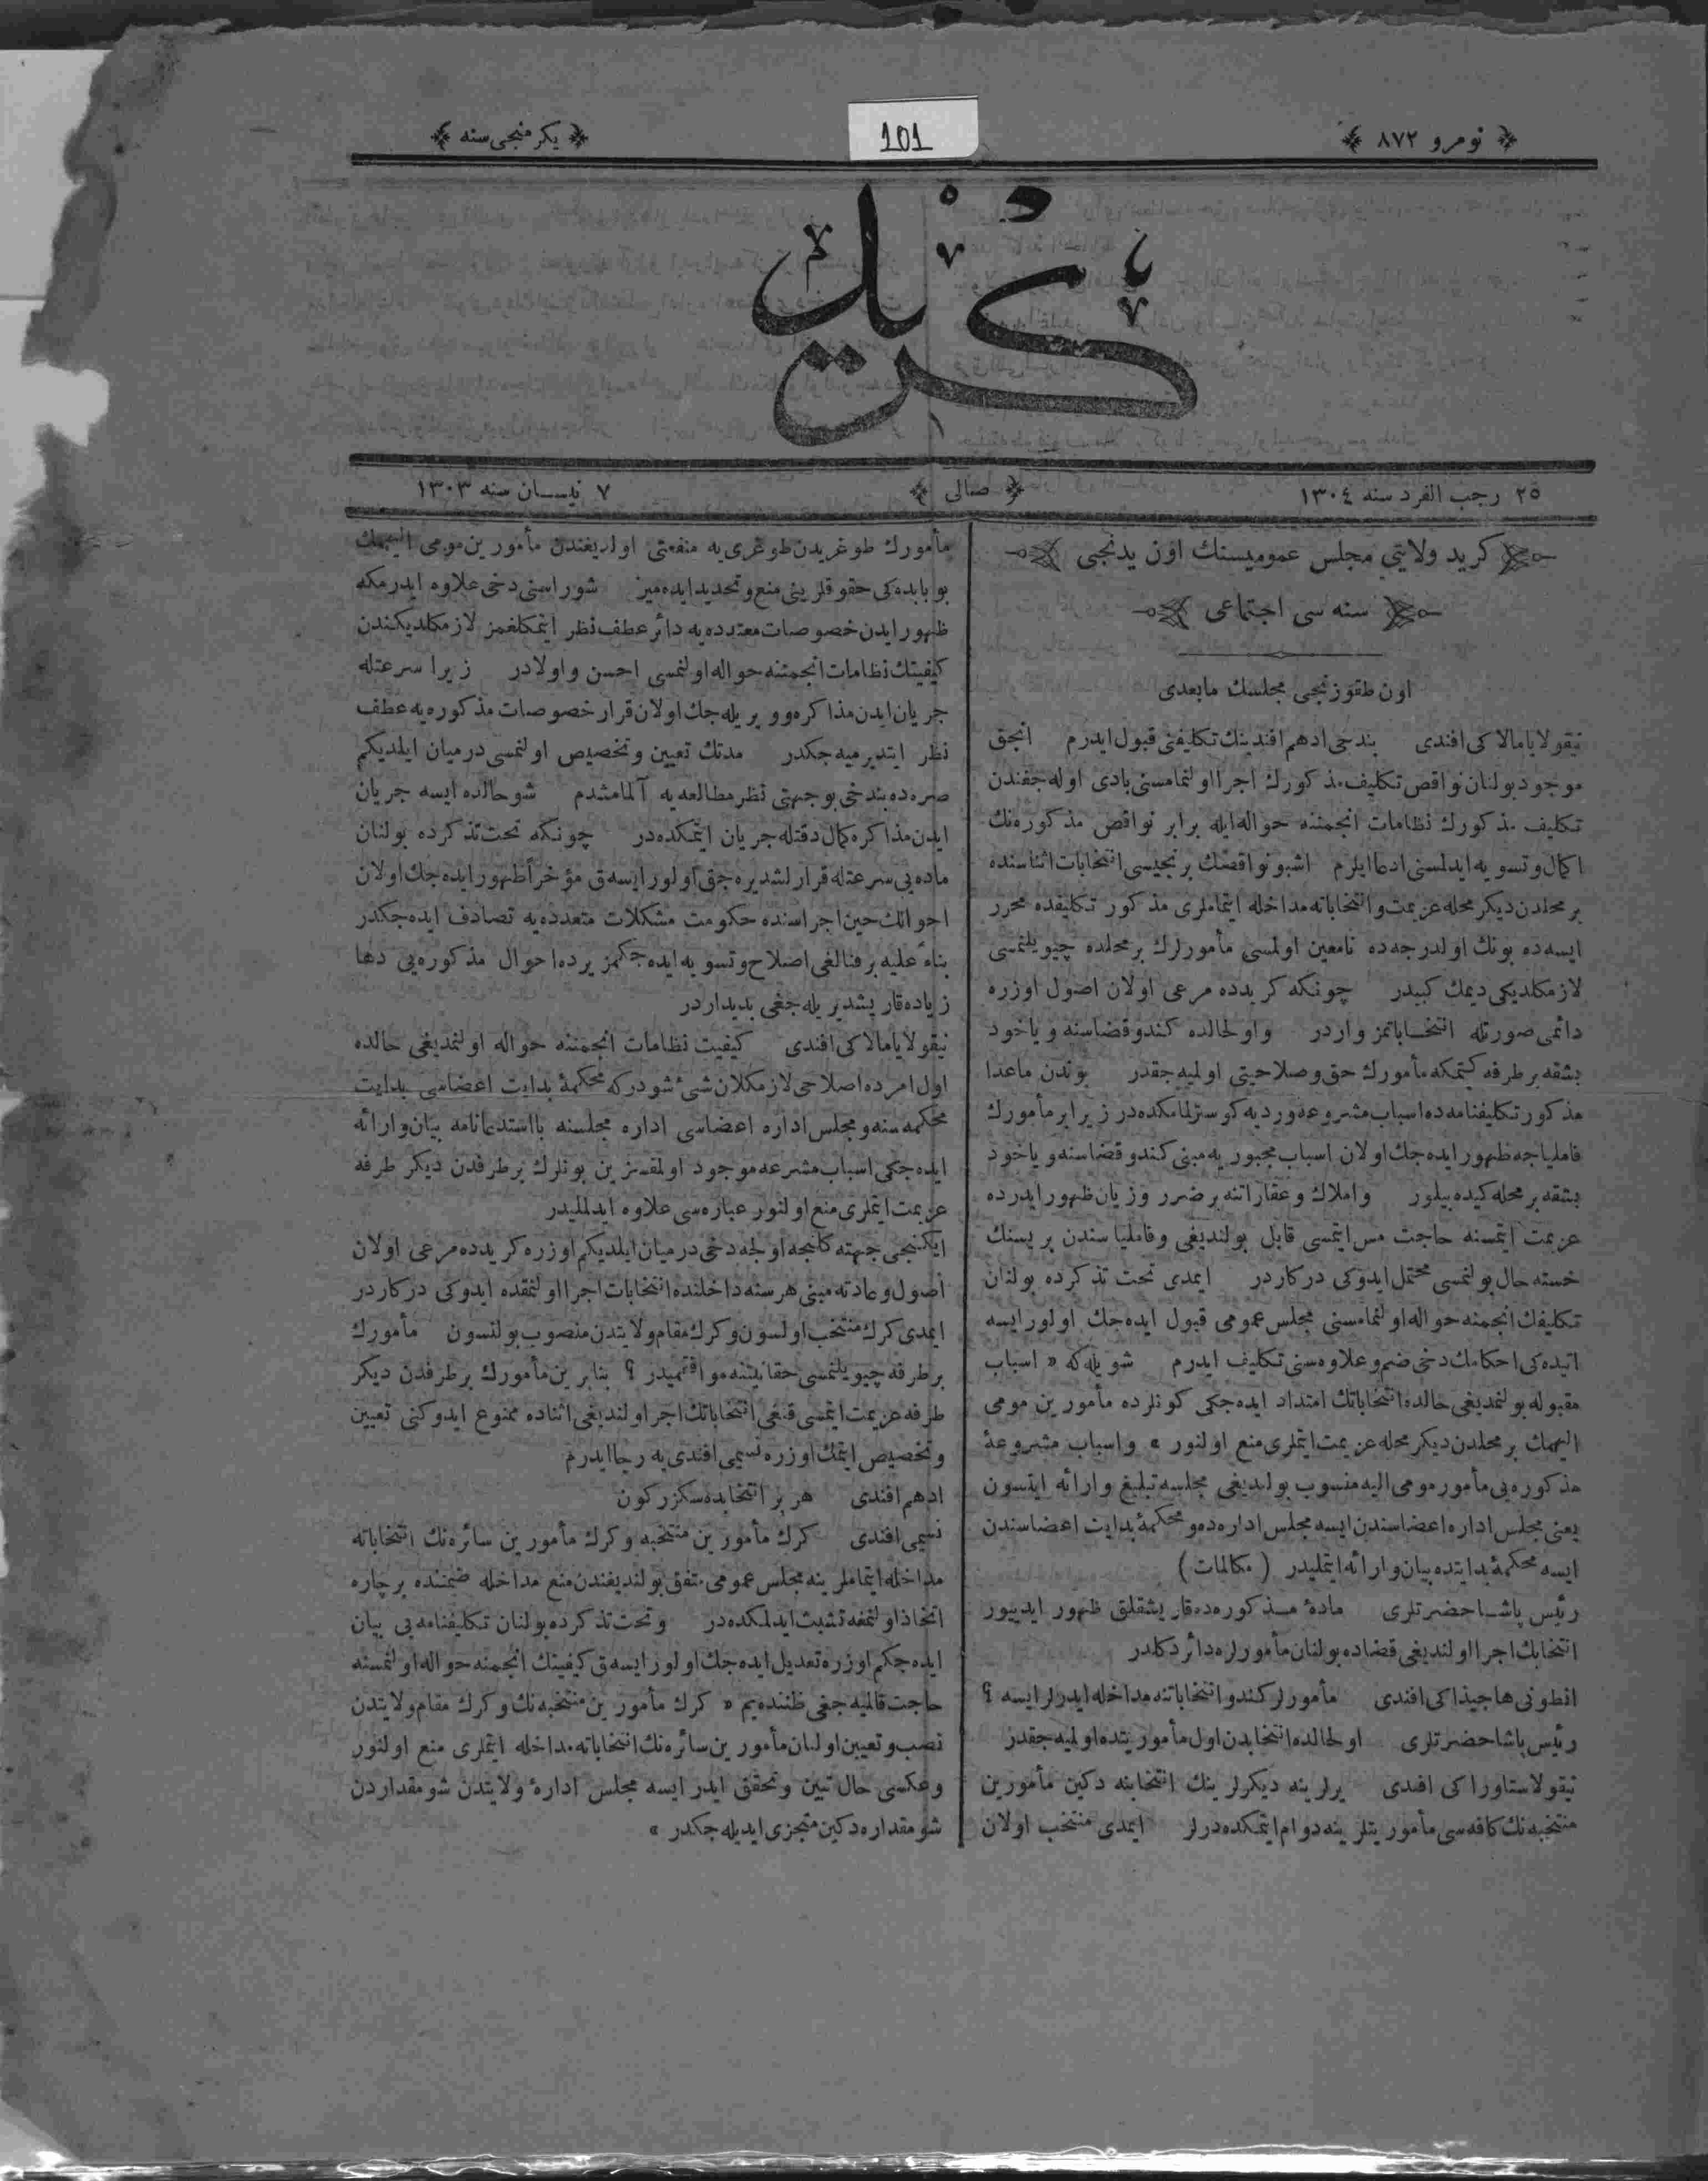 نومرو ٨٧٢
101
يكرمنجى سنه
كريد
٢٥ رجب الفرد سنه ١٣٠٤
صالى
٧ نيسان سنه ١٣٠٣
كريد ولايتى مجلس عموميسنك اون يدنجى
سنه سى اجتماعى
اون طقوزنجى مجلسك مابعدى
نيقولا يامالاكى افندى بندخى ادهم افندينك تكليفنى قبول ايدرم انجق
موجود بولنان نواقص تكليف مذكورك اجرا اولنمامسنى بادى اوله جغندن
تكليف مذكورك نظامات انجمننه حواله ايله برابر نواقص مذكوره نك
اكمال وتسويه ايدلمسنى ادعا ايلرم اشبو نواقصك برنجيسى انتخابات اثناسنده
بر محلدن ديكر محله عزيمت وانتخاباته مداخله ايتماملرى مذكور تكليفده محرر
ايسه ده بونك اولدرجه ده نامعين اولمسى مأمورلرك بر محلده چيويلنمسى
لازمكلديكى ديمك كبيدر چونكه كريدده مرعى اولان اصول اوزره
دائمى صورتله انتخاباتمز واردر واولحالده كندو قضاسنه وياخود
بشقه بر طرفه كيتمكه مأمورك حق وصلاحيتى اولميه جقدر بوندن ماعدا
مذكور تكليفنامه ده اسباب مشروعه ورديه كوسترلمامكده در زيرا بر مأمورك
فاملياجه ظهور ايده جك اولان اسباب مجبوريه مبنى كندو قضاسنه وياخود
بشقه بر محله كيده بيلور واملاك وعقاراتنه بر ضرر وزيان ظهور ايدرده
عزيمت ايتمسنه حاجت مس ايتمسى قابل بولنديغى وفاملياسندن بريسنك
خسته حال بولنمسى محتمل ايدوكى دركاردر ايمدى تحت تذكرده بولنان
تكليفك انجمنه حواله اولنمامسنى مجلس عمومى قبول ايده جك اولور ايسه
اتيده كى احكامك دخى ضم وعلاوه سنى تكليف ايدرم شويله كه « اسباب
مقبوله بولنمديغى حالده انتخاباتك امتداد ايده جكى كونلرده مأمورين مومى
اليهمك بر محلدن ديكر محله عزيمت ايتملرى منع اولنور » واسباب مشروعۀ
مذكوره يى مأمور مومى اليه منسوب بولنديغى مجلسه تبليغ وارائه ايتسون
يعنى مجلس اداره اعضاسندن ايسه مجلس اداره ده ومحكمۀ بدايت اعضاسندن
ايسه محكمۀ بدايتده بيان وارائه ايتمليدر (مكالمات)
رئيس پاشا حضرتلرى مادۀ مذكوره ده قاريشقلق ظهور ايدييور
انتخابك اجرا اولنديغى قضاده بولنان مأمورلره دائر دكلدر
انطونى هاجيذاكى افندى مأمورلر كندو انتخاباتنه مداخله ايدرلر ايسه ؟
رئيس پاشا حضرتلرى اولحالده انتخابدن اول مأموريتده اولميه جقدر
نيقولا ستاوراكى افندى يرلرينه ديكرلرينك انتخابنه دكين مأمورين
منتخبه نك كافه سى مأموريتلرينه دوام ايتمكده درلر ايمدى منتخب اولان
مأمورك طوغريدن طوغرى يه منفعتى اولديغندن مأمورين مومى اليهمك
بو بابده كى حقوقلرينى منع وتحديد ايده ميز شوراسنى دخى علاوه ايدرمكه
ظهور ايدن خصوصات متعدده يه دائر عطف نظر ايتمكلغمز لازمكلديكندن
كيفيتك نظامات انجمننه حواله اولنمسى احسن واولادر زيرا سرعتله
جريان ايدن مذاكره وويريله جك اولان قرار خصوصات مذكوره يه عطف
نظر ايتديرميه جكدر مدتك تعيين وتخصيص اولنمسى درميان ايلديكم
صره ده بندخى بو جهتى نظر مطالعه يه آلمامشدم شو حالده ايسه جريان
ايدن مذاكره كمال دقتله جريان ايتمكده در چونكه تحت تذكرده بولنان
ماده يى سرعتله قرارلشديره جق اولور ايسه ق مؤخراً ظهور ايده جك اولان
احوالك حين اجراسنده حكومت مشكلات متعدده يه تصادف ايده جكدر
بناءً عليه بر فنالغى اصلاح وتسويه ايده جكمز يرده احوال مذكوره يى دها
زياده قاريشديريله جغى بديداردر
نيقولا يامالاكى افندى كيفيت نظامات انجمننه حواله اولنمديغى حالده
اول امرده اصلاحى لازمكلان شئ شودركه محكمۀ بدايت اعضاسى بدايت
محكمه سنه ومجلس اداره اعضاسى اداره مجلسنه بااستدعانامه بيان وارائه
ايده جكى اسباب مشرعه موجود اولمقسزين بونلرك بر طرفدن ديكر طرفه
عزيمت ايتملرى منع اولنور عباره سى علاوه ايدلمليدر
ايكنجى جهته كلنجه اولجه دخى درميان ايلديكم اوزره كريدده مرعى اولان
اصول وعادته مبنى هر سنه داخلنده انتخابات اجرا اولنمقده ايدوكى دركاردر
ايمدى كرك منتخب اولسون وكرك مقام ولايتدن منصوب بولنسون مأمورك
بر طرفه چيويلنمسى حقانيتنه موافقميدر ؟ بنابرين مأمورك بر طرفدن ديكر
طرفه عزيمت ايتمسى قنغى انتخاباتك اجرا اولنديغى اثناده ممنوع ايدوكنى تعيين
وتخصيص ايتمك اوزره نسيمى افندى يه رجا ايدرم
ادهم افندى هر بر انتخابده سكزر كون
نسيمى افندى كرك مأمورين منتخبه وكرك مأمورين سائره نك انتخاباته
مداخله ايتماملرينه مجلس عمومى متفق بولنديغندن منع مداخله ضمننده بر چاره
اتخاذ اولنمغه تشبث ايدلمكده در وتحت تذكرده بولنان تكليفنامه يى بيان
ايده جكم اوزره تعديل ايده جك اولور ايسه ق كيفيتك انجمنه حواله اولنمسنه
حاجت قالميه جغى ظننده يم « كرك مأمورين منتخبه نك وكرك مقام ولايتدن
نصب وتعيين اولنان مأمورين سائره نك انتخاباته مداخله ايتملرى منع اولنور
وعكسى حال تبين وتحقق ايدر ايسه مجلس ادارۀ ولايتدن شو مقداردن
شو مقداره دكين متجزى ايديله جكدر »